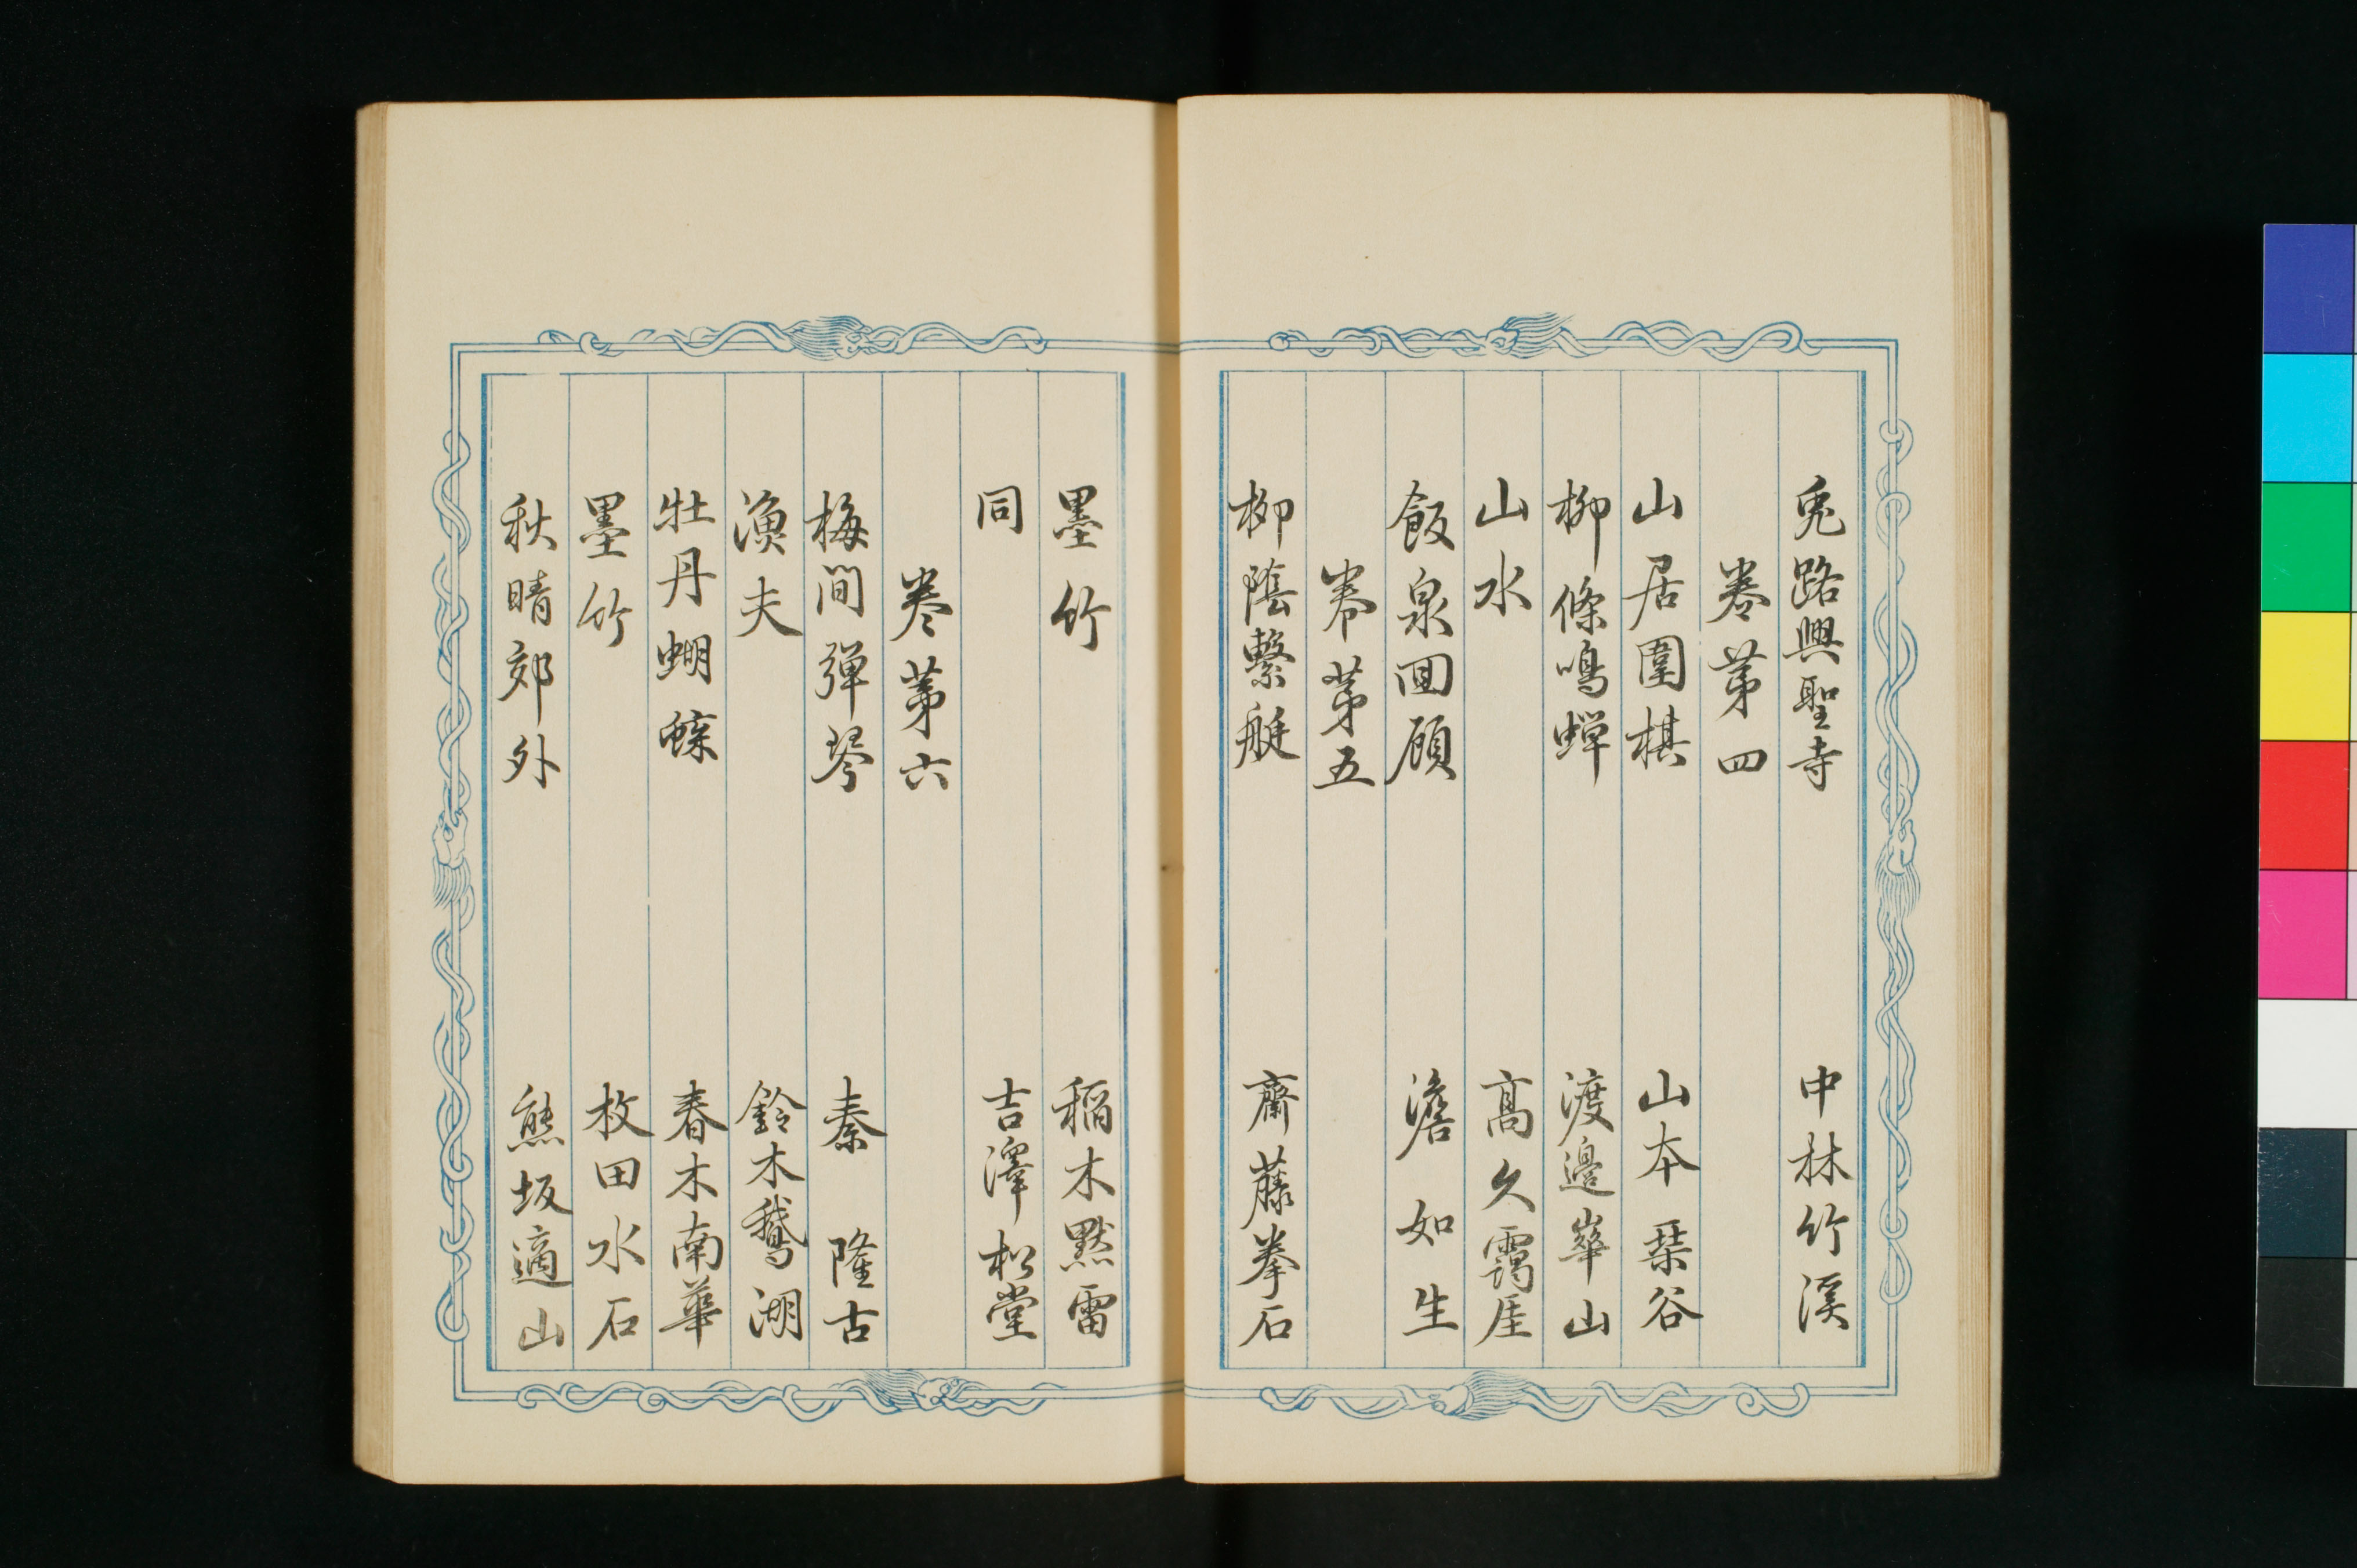 兎路興聖寺 中林竹渓
卷第四
山居圍棋 山本琹谷
柳條鳴蝉 渡邉崋山
山水 髙久靄厓
飯泉囬顧 澹如生
卷第五
柳陰繋艇 齋藤拳石
墨竹 稲木黙雷
同 吉澤松堂
卷第六
梅間弾琴 秦隆古
漁夫 鈴木鵞湖
牡丹蝴蝶 春木南華
墨竹 枚田水石
秋晴郊外 熊坂適山